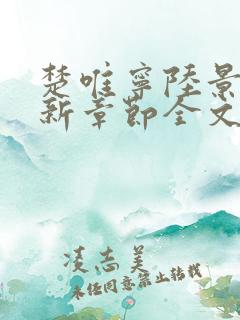 楚唯寧陸景
新章節全文
凌志美
未经同意禁止转载